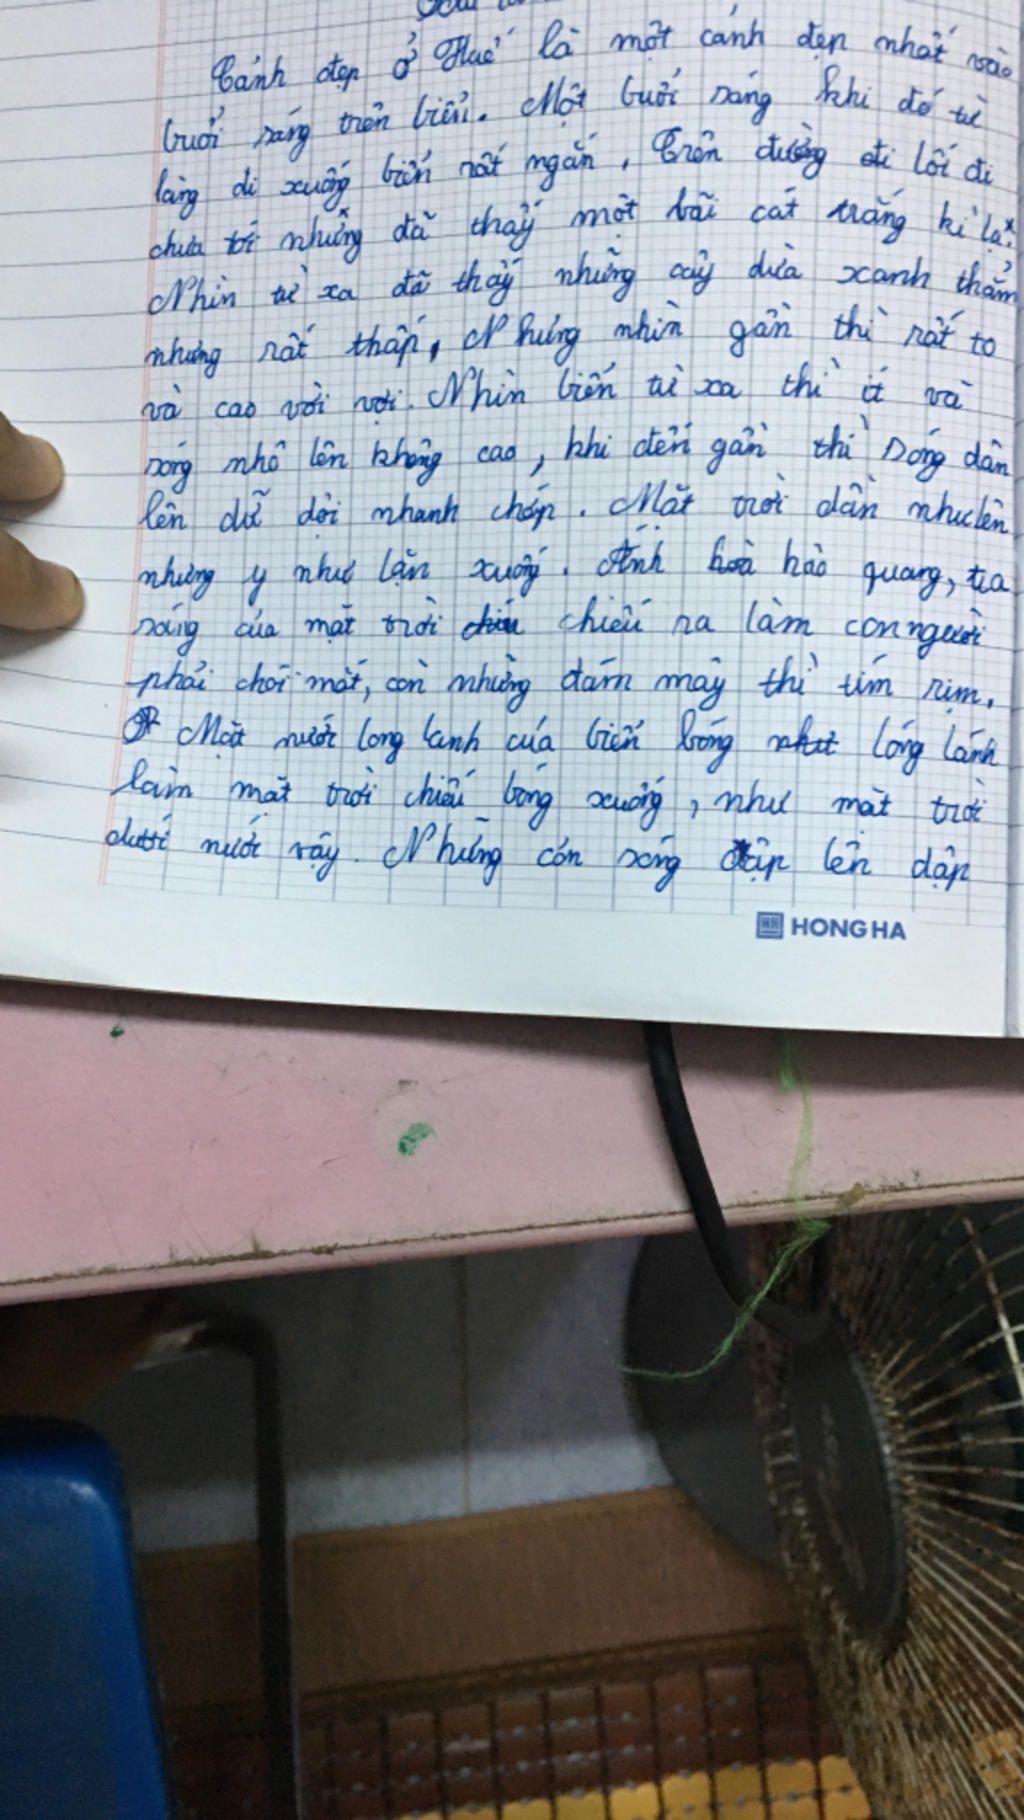 Cảnh đẹp ở Huế là một cảnh đẹp nhất vào
buổi sáng trên biển. Một buổi sáng khi đó từ
làng đi xuống biển rất ngắn, Trên đường đi lối đi
chưa tới nhưng đã thấy một bãi cát trắng kì lạ.
Nhìn từ xa đã thấy những cây dừa xanh thẳm
nhưng rất thấp, Nhưng nhìn gần thì rất to
và cao vời vợi. Nhìn biển từ xa thì ít và
sóng nhô lên không cao, khi đến gần thì sóng dân
lên dữ dội nhanh chóp. Mặt trời dần nhuclên
nhưng y như lặn xuống. Ánh hào quang, tia
sáng của mặt trời chiếu ra làm conngười
phải chói mắt, còn những đám mây thì tím rịm.
Mặt nước long lanh của biển bóng lóng lánh
làm mặt trời chiếu bóng xuống, như mặt trời
dưới nước vậy. Những cón sóng đập lên dập
HONG HA